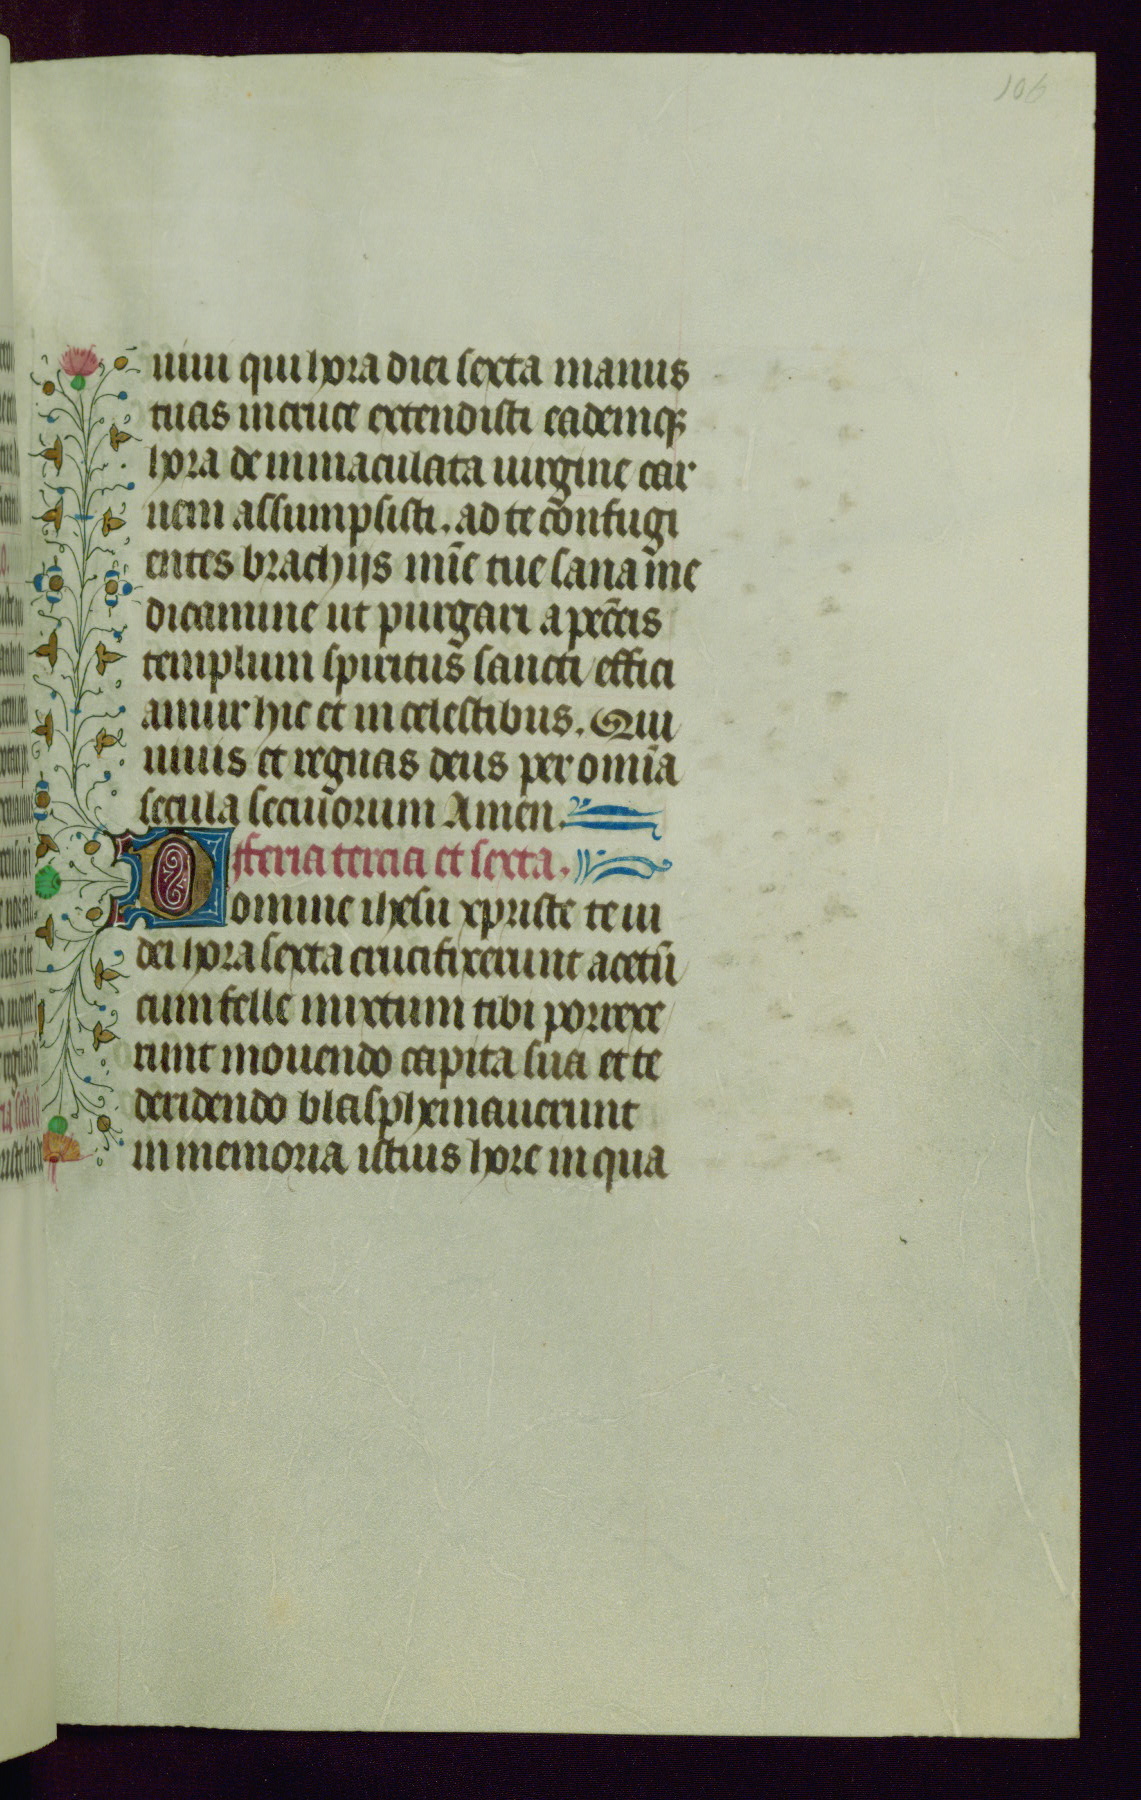 106
uiui qui hora diei sexta manus
tuas in cruce extendisti eademq;
hora de inmaculata uirgine car
nem assumpsisti. ad te confugi
entes brachijs mīe tue sana me
dicamine ut purgari a pctīs
templum spiritus sancti effici
amur hic et in celestibus. Qui
uiuis et regnas deus per omīa
secula seculorum Amen.
fferia tercia et sexta.
Domine ihesu xpriste te iu
dei hora sexta crucifixerunt acetū
cum felle mixtum tibi porrexe
runt mouendo capita sua et te
deridendo blasphemauerunt
in memoria istius hore in qua